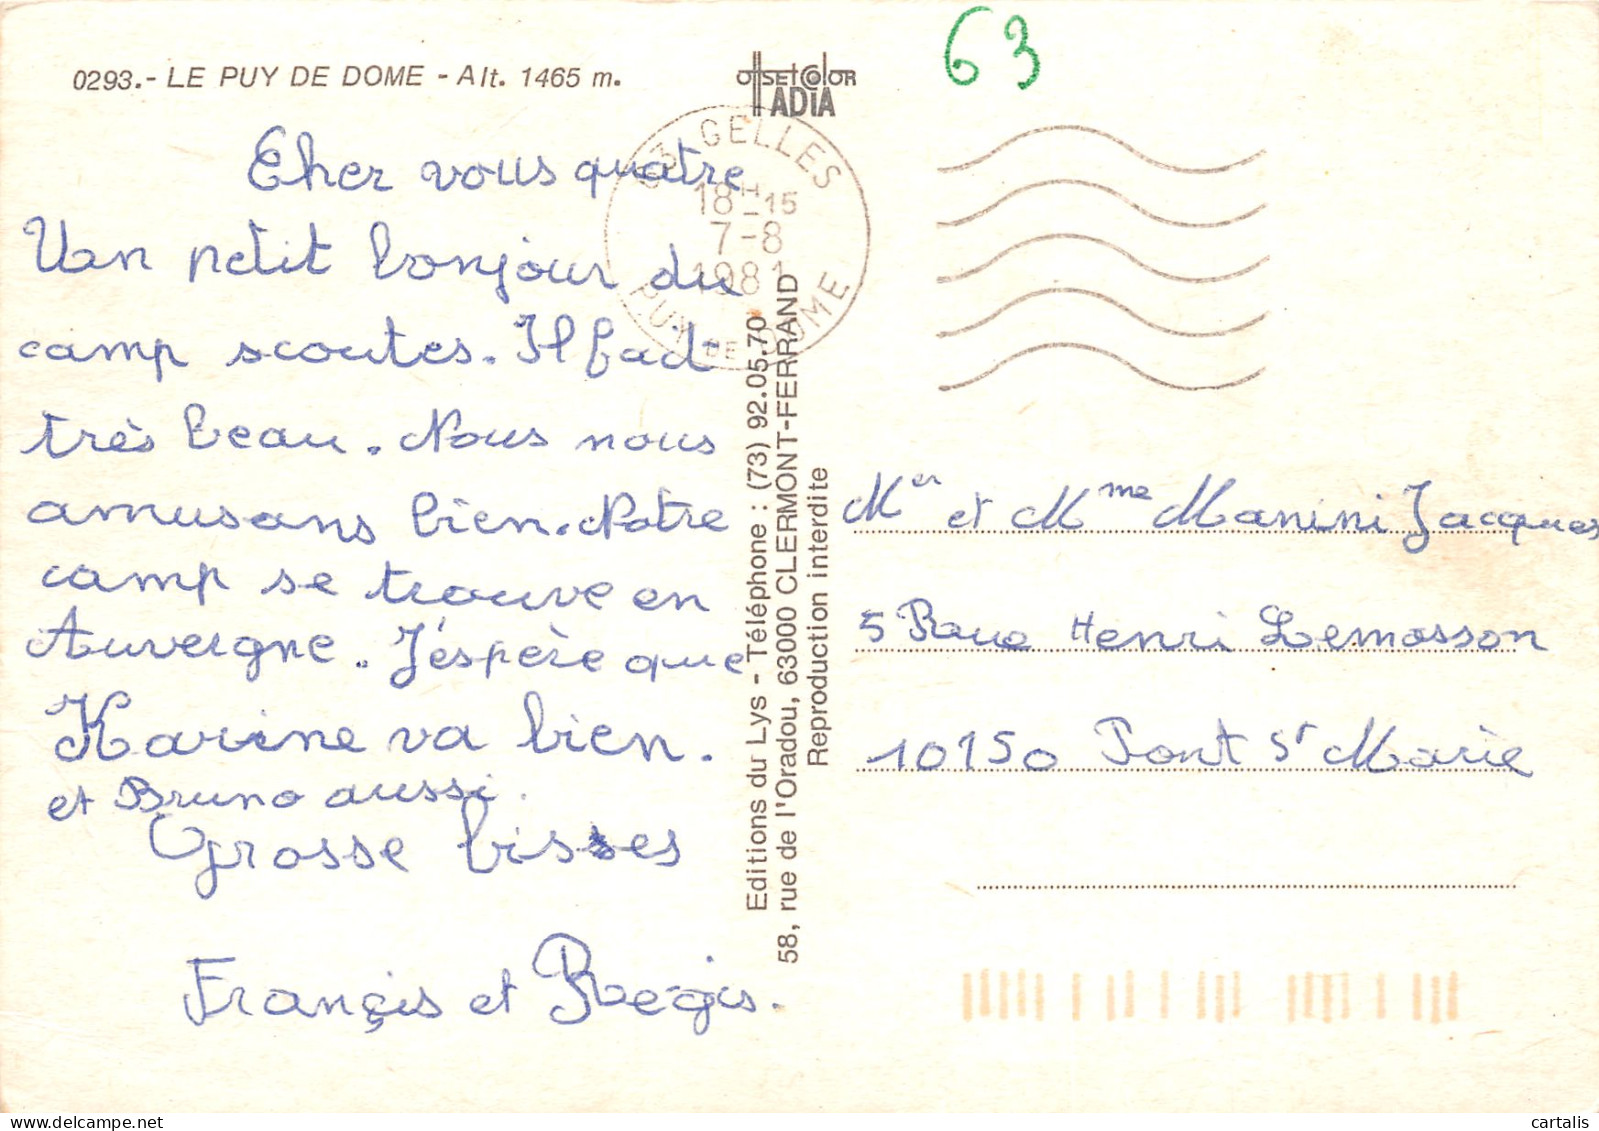 0293.- LE PUY DE DOME - Alt. 1465 m.
offset color
ADIA
63
63 GELLES
18H-15
7-8
1981
PUY DE DOME
Cher vous quatre
Un petit bonjour du
camp scoutes. Il fait
très beau. Nous nous
amusons bien. Notre
camp se trouve en
Auvergne. J'éspère que
Karine va bien.
et Bruno aussi.
Grosse bisses
Françis et Régis.
Editions du Lys - Téléphone : (73) 92.05.70
58, rue de l'Oradou, 63000 CLERMONT-FERRAND
Reproduction interdite
Mer et Mme Manini Jacques
5 Rue Henri Lemosson
10150 Pont St Marie
cartalis